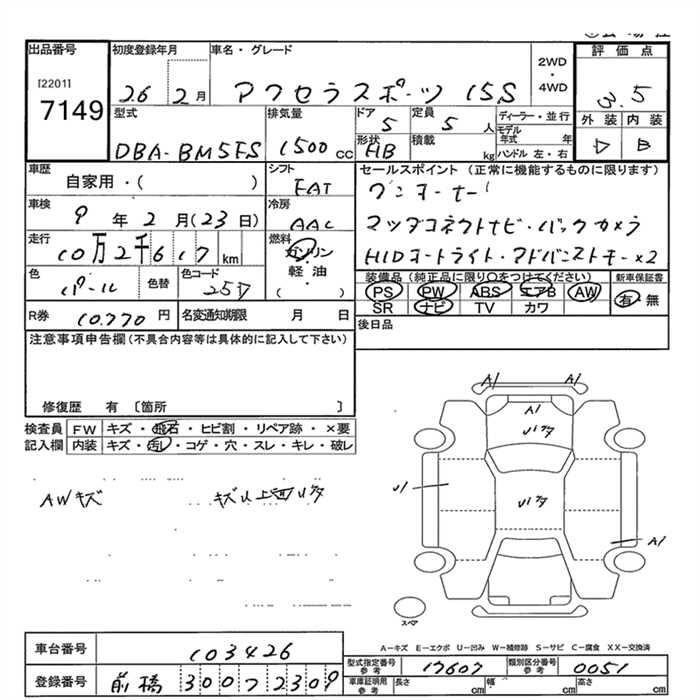 出品番号 初度登録年月 車名・グレード 2WD・4WD 評価点
[2201]
7149
26 2月 アクセラスポーツ 15S 3.5
型式 排気量 ドア 定員 ディーラー・並行 外装 内装
DBA-BM5FS 1500cc 5 5人 モデル年式 年
形状 積載 kg ハンドル 左・右
HB D B
車歴 シフト セールスポイント (正常に機能するものに限ります)
自家用・( ) FAT ワンオーナー
車検 冷房
9年2月(23日) AAC マツダコネクトナビ・バックカメラ
走行 燃料
10万2千617km ガソリン・軽油・( ) HIDオートライト・アドバンストキー×2
色 色替 色コード 装備品(純正品に限り○をつけてください) 新車保証書
パール 25D PS PW ABS エアB AW 有・無
SR ナビ TV カワ
R券 10,770円 名変通知期限 月 日 後日品
注意事項申告欄(不具合内容等は具体的に記入して下さい)
修復歴 有 〔箇所 〕
検査員 FW キズ・飛石・ヒビ割・リペア跡・×要
記入欄 内装 キズ・汚レ・コゲ・穴・スレ・キレ・破レ
A1 A1
A1
AWキズ
U1
A1
スペア
A-キズ E-エクボ U-凹み W-補修跡 S-サビ C-腐食 XX-交換済
車台番号 103426
型式指定番号 参考 17607 類別区分番号 参考 0051
登録番号 前橋 300 ワ 2309
車庫証明用 参考 長さ cm 幅 cm 高さ cm